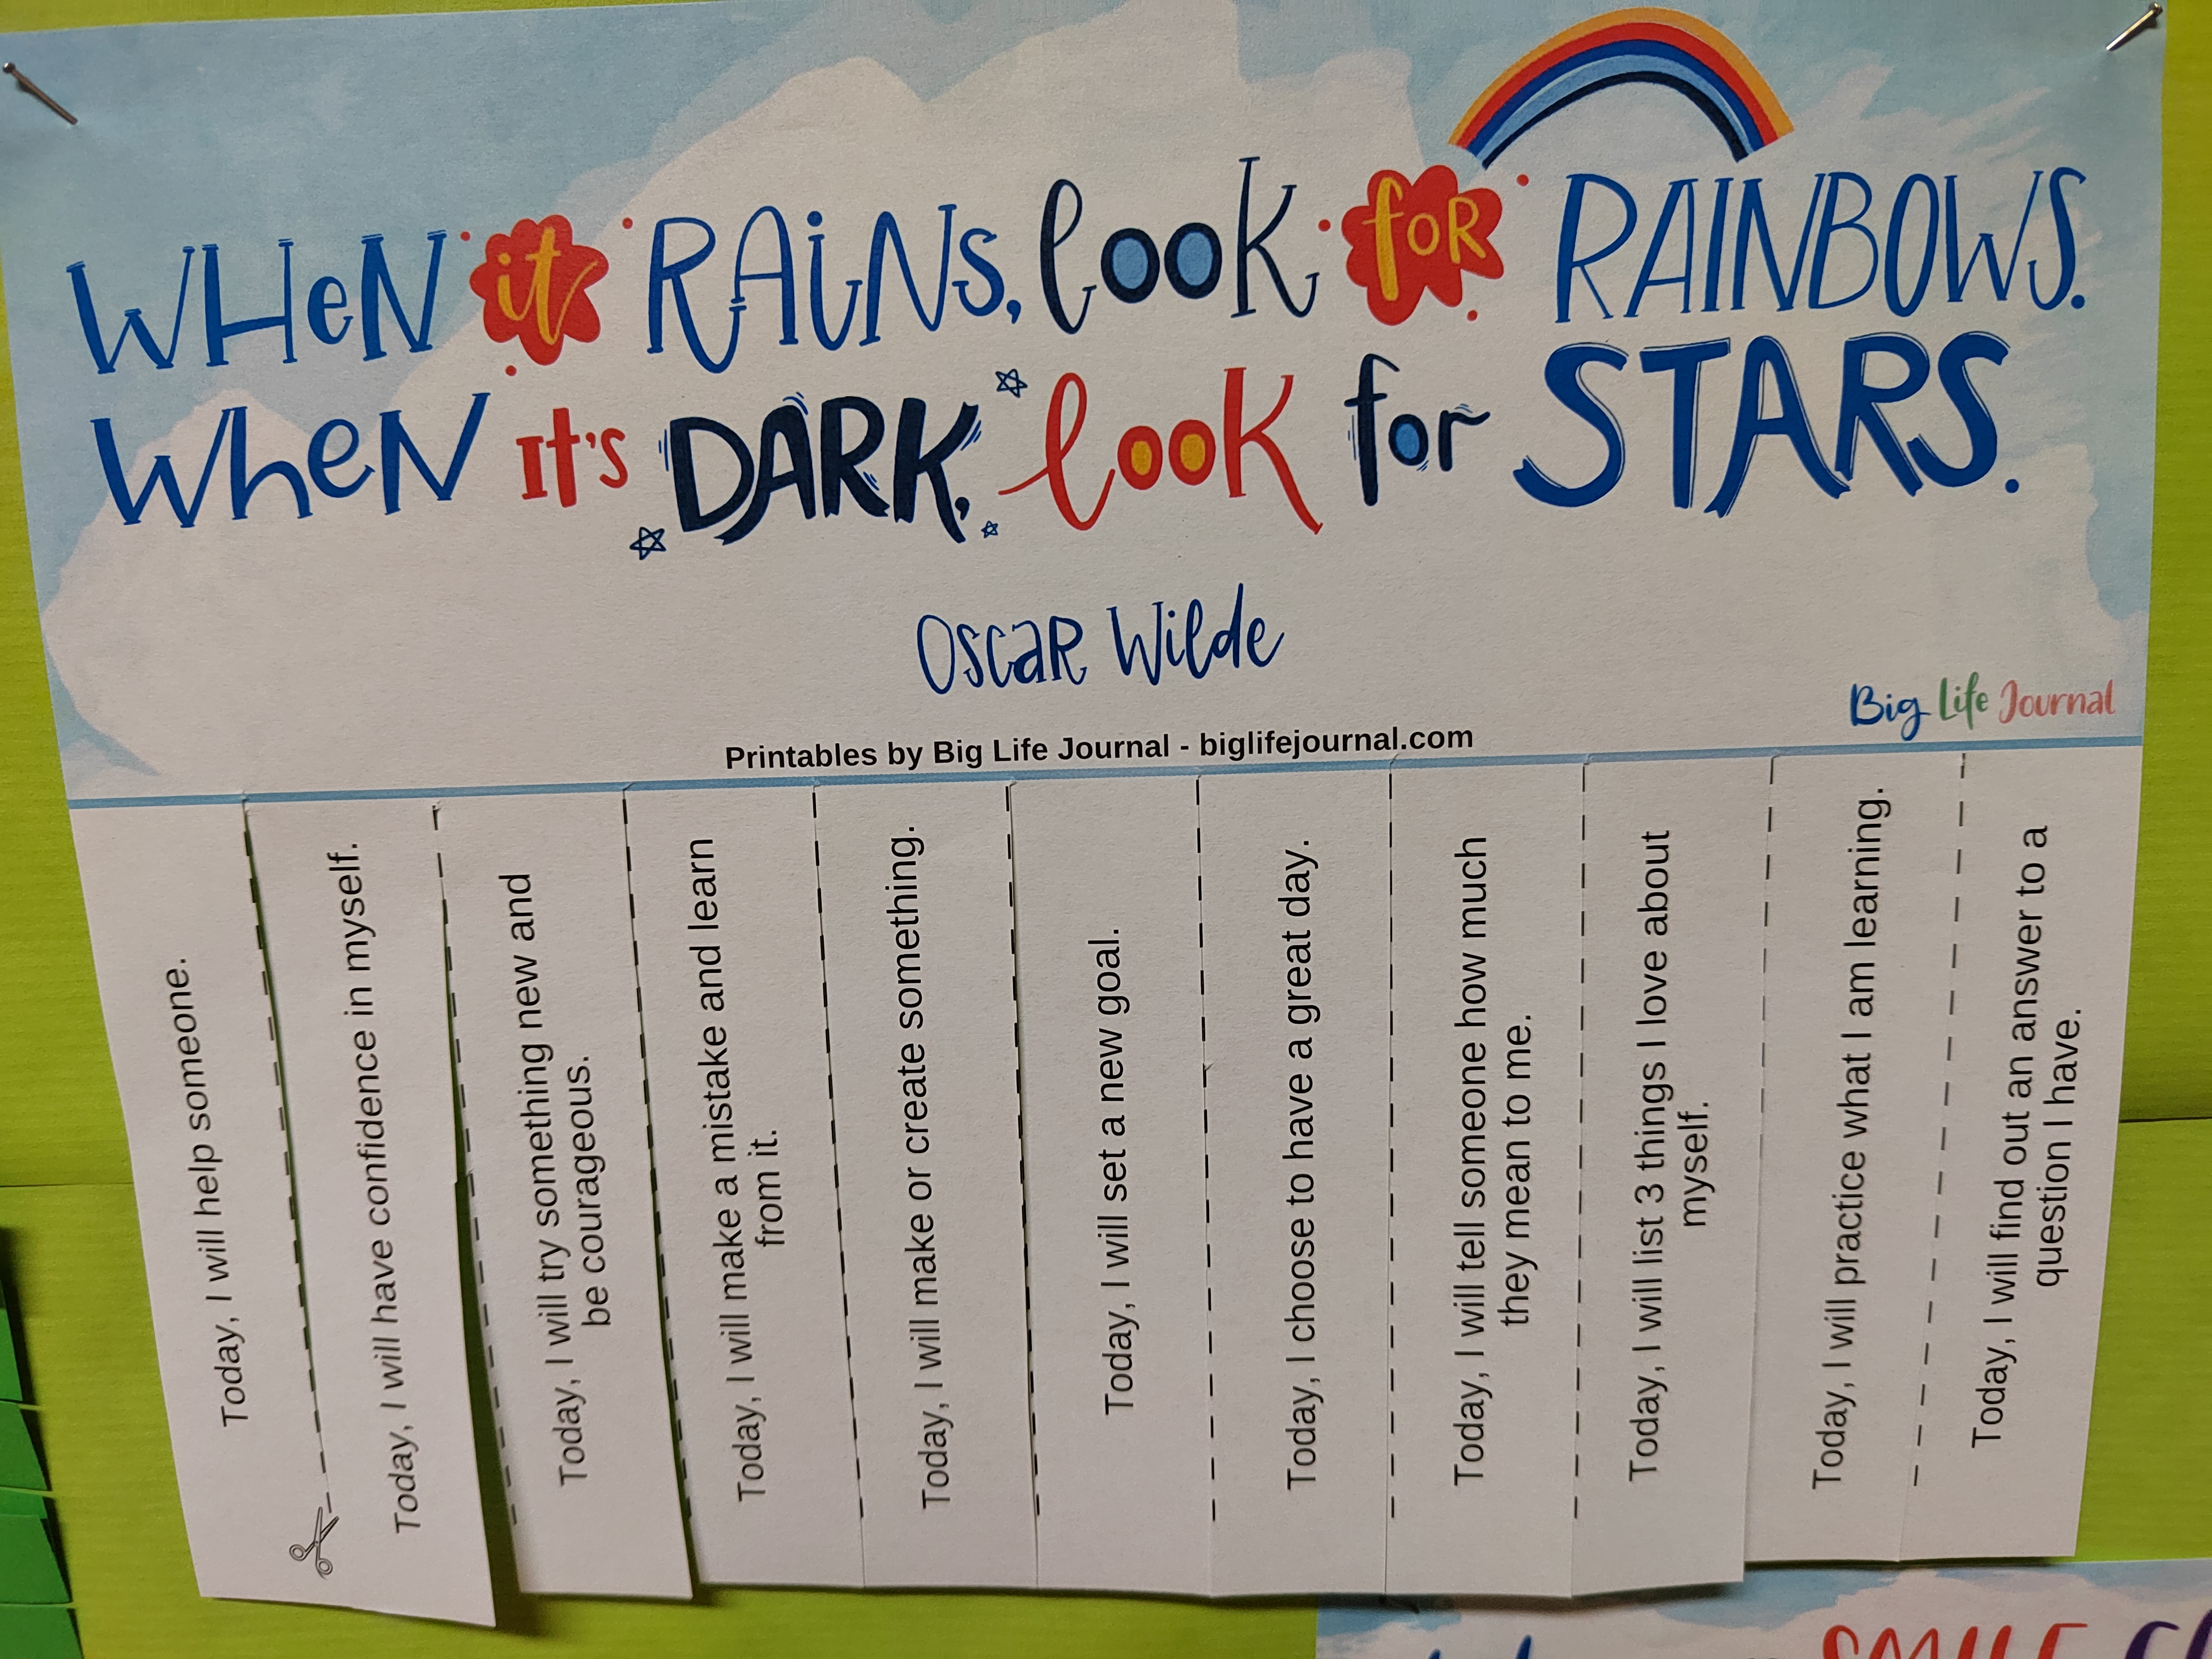 WHeN it RAiNs, look foR RAINBOWS.
WheN It's DARK, look for STARS.
OscaR Wilde
Big Life Journal
Printables by Big Life Journal - biglifejournal.com
Today, I will help someone.
Today, I will have confidence in myself.
Today, I will try something new and
be courageous.
Today, I will make a mistake and learn
from it.
Today, I will make or create something.
Today, I will set a new goal.
Today, I choose to have a great day.
Today, I will tell someone how much
they mean to me.
Today, I will list 3 things I love about
myself.
Today, I will practice what I am learning.
Today, I will find out an answer to a
question I have.
SMILE